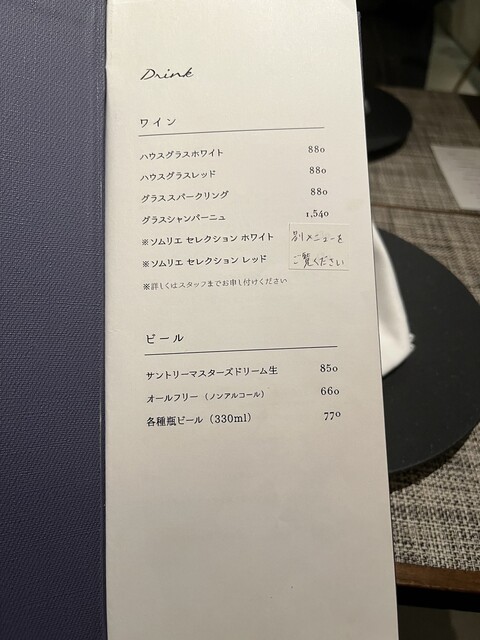 Drink
ワイン
ハウスグラスホワイト 880
ハウスグラスレッド 880
グラススパークリング 880
グラスシャンパーニュ 1,540
※ソムリエ セレクション ホワイト 別メニューを
※ソムリエ セレクション レッド ご覧ください
※詳しくはスタッフまでお申し付けください
ビール
サントリーマスターズドリーム生 850
オールフリー（ノンアルコール） 660
各種瓶ビール（330ml） 770